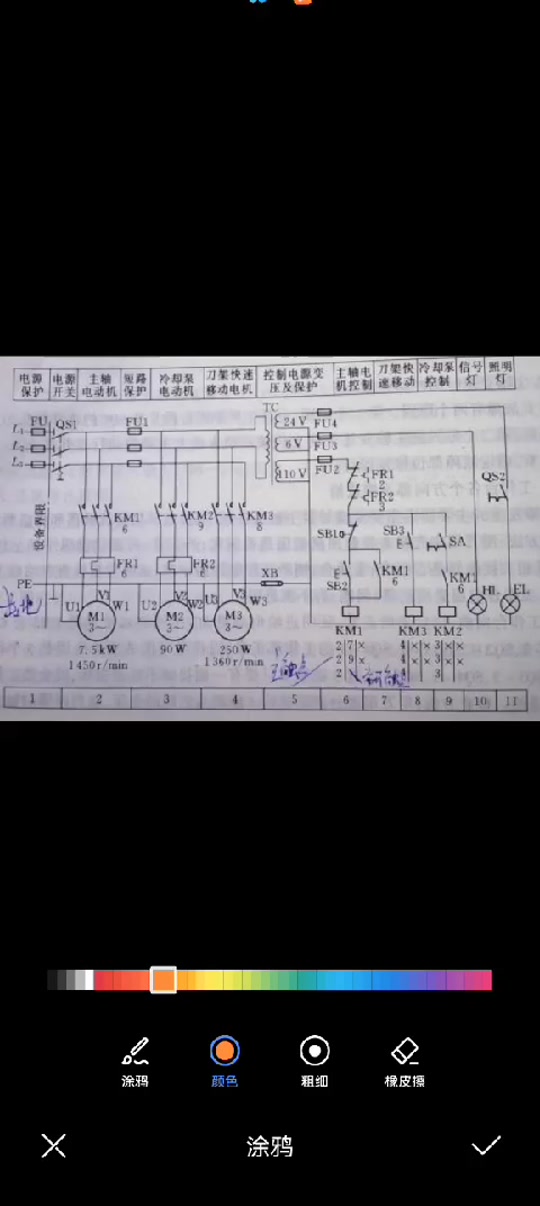 电源保护 电源开关 主轴电动机 短路保护 冷却泵电动机 刀架快速移动电机 控制电源变压及保护 主轴电机控制 刀架快速移动 冷却泵控制 信号灯 照明灯
FU QS1 FU1 TC 24V FU4
L1
L2 6V FU3
L3 110V FU2 FR1 QS2
2 2
FR2
3
设备界限
KM1 KM2 KM3
6 9 8
SB1 SB3 SA
E
FR1 FR2 XB E KM1 KM1
6 6 SB2 6 6
PE HL EL
U1 V1 W1 U2 V2 W2 U3 V3 W3
M1 M2 M3
3~ 3~ 3~
KM1 KM3 KM2
7.5kW 90W 250W 2 7 × 4 × × 3 × ×
1450r/min 1360r/min 2 9 × 4 × × 3 × ×
2 4 3
1 2 3 4 5 6 7 8 9 10 11
涂鸦 颜色 粗细 橡皮擦
涂鸦